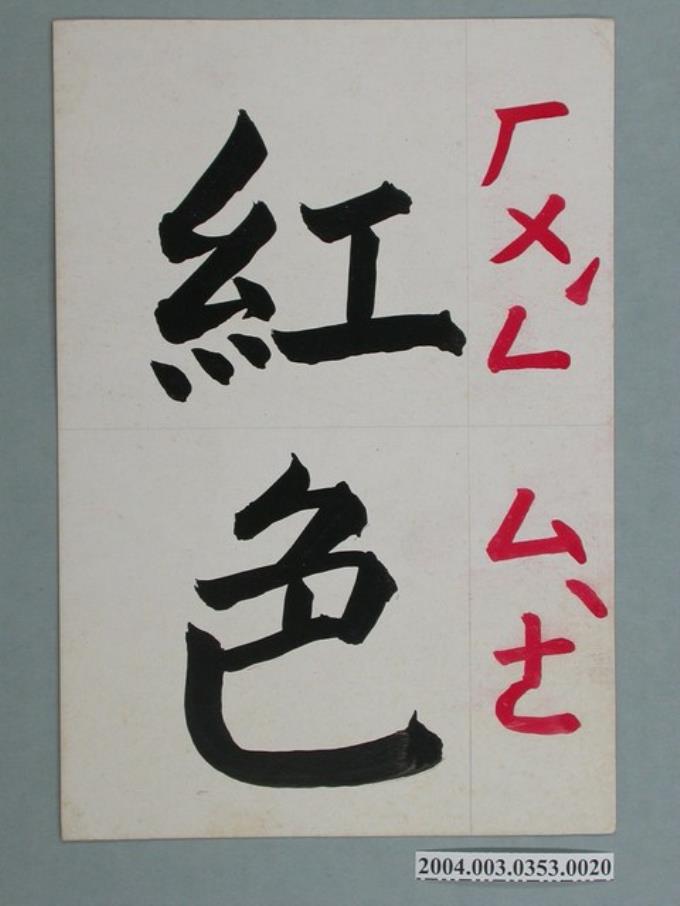 紅色
ㄏㄨㄥˊ
ㄙㄜˋ
2004.003.0353.0020